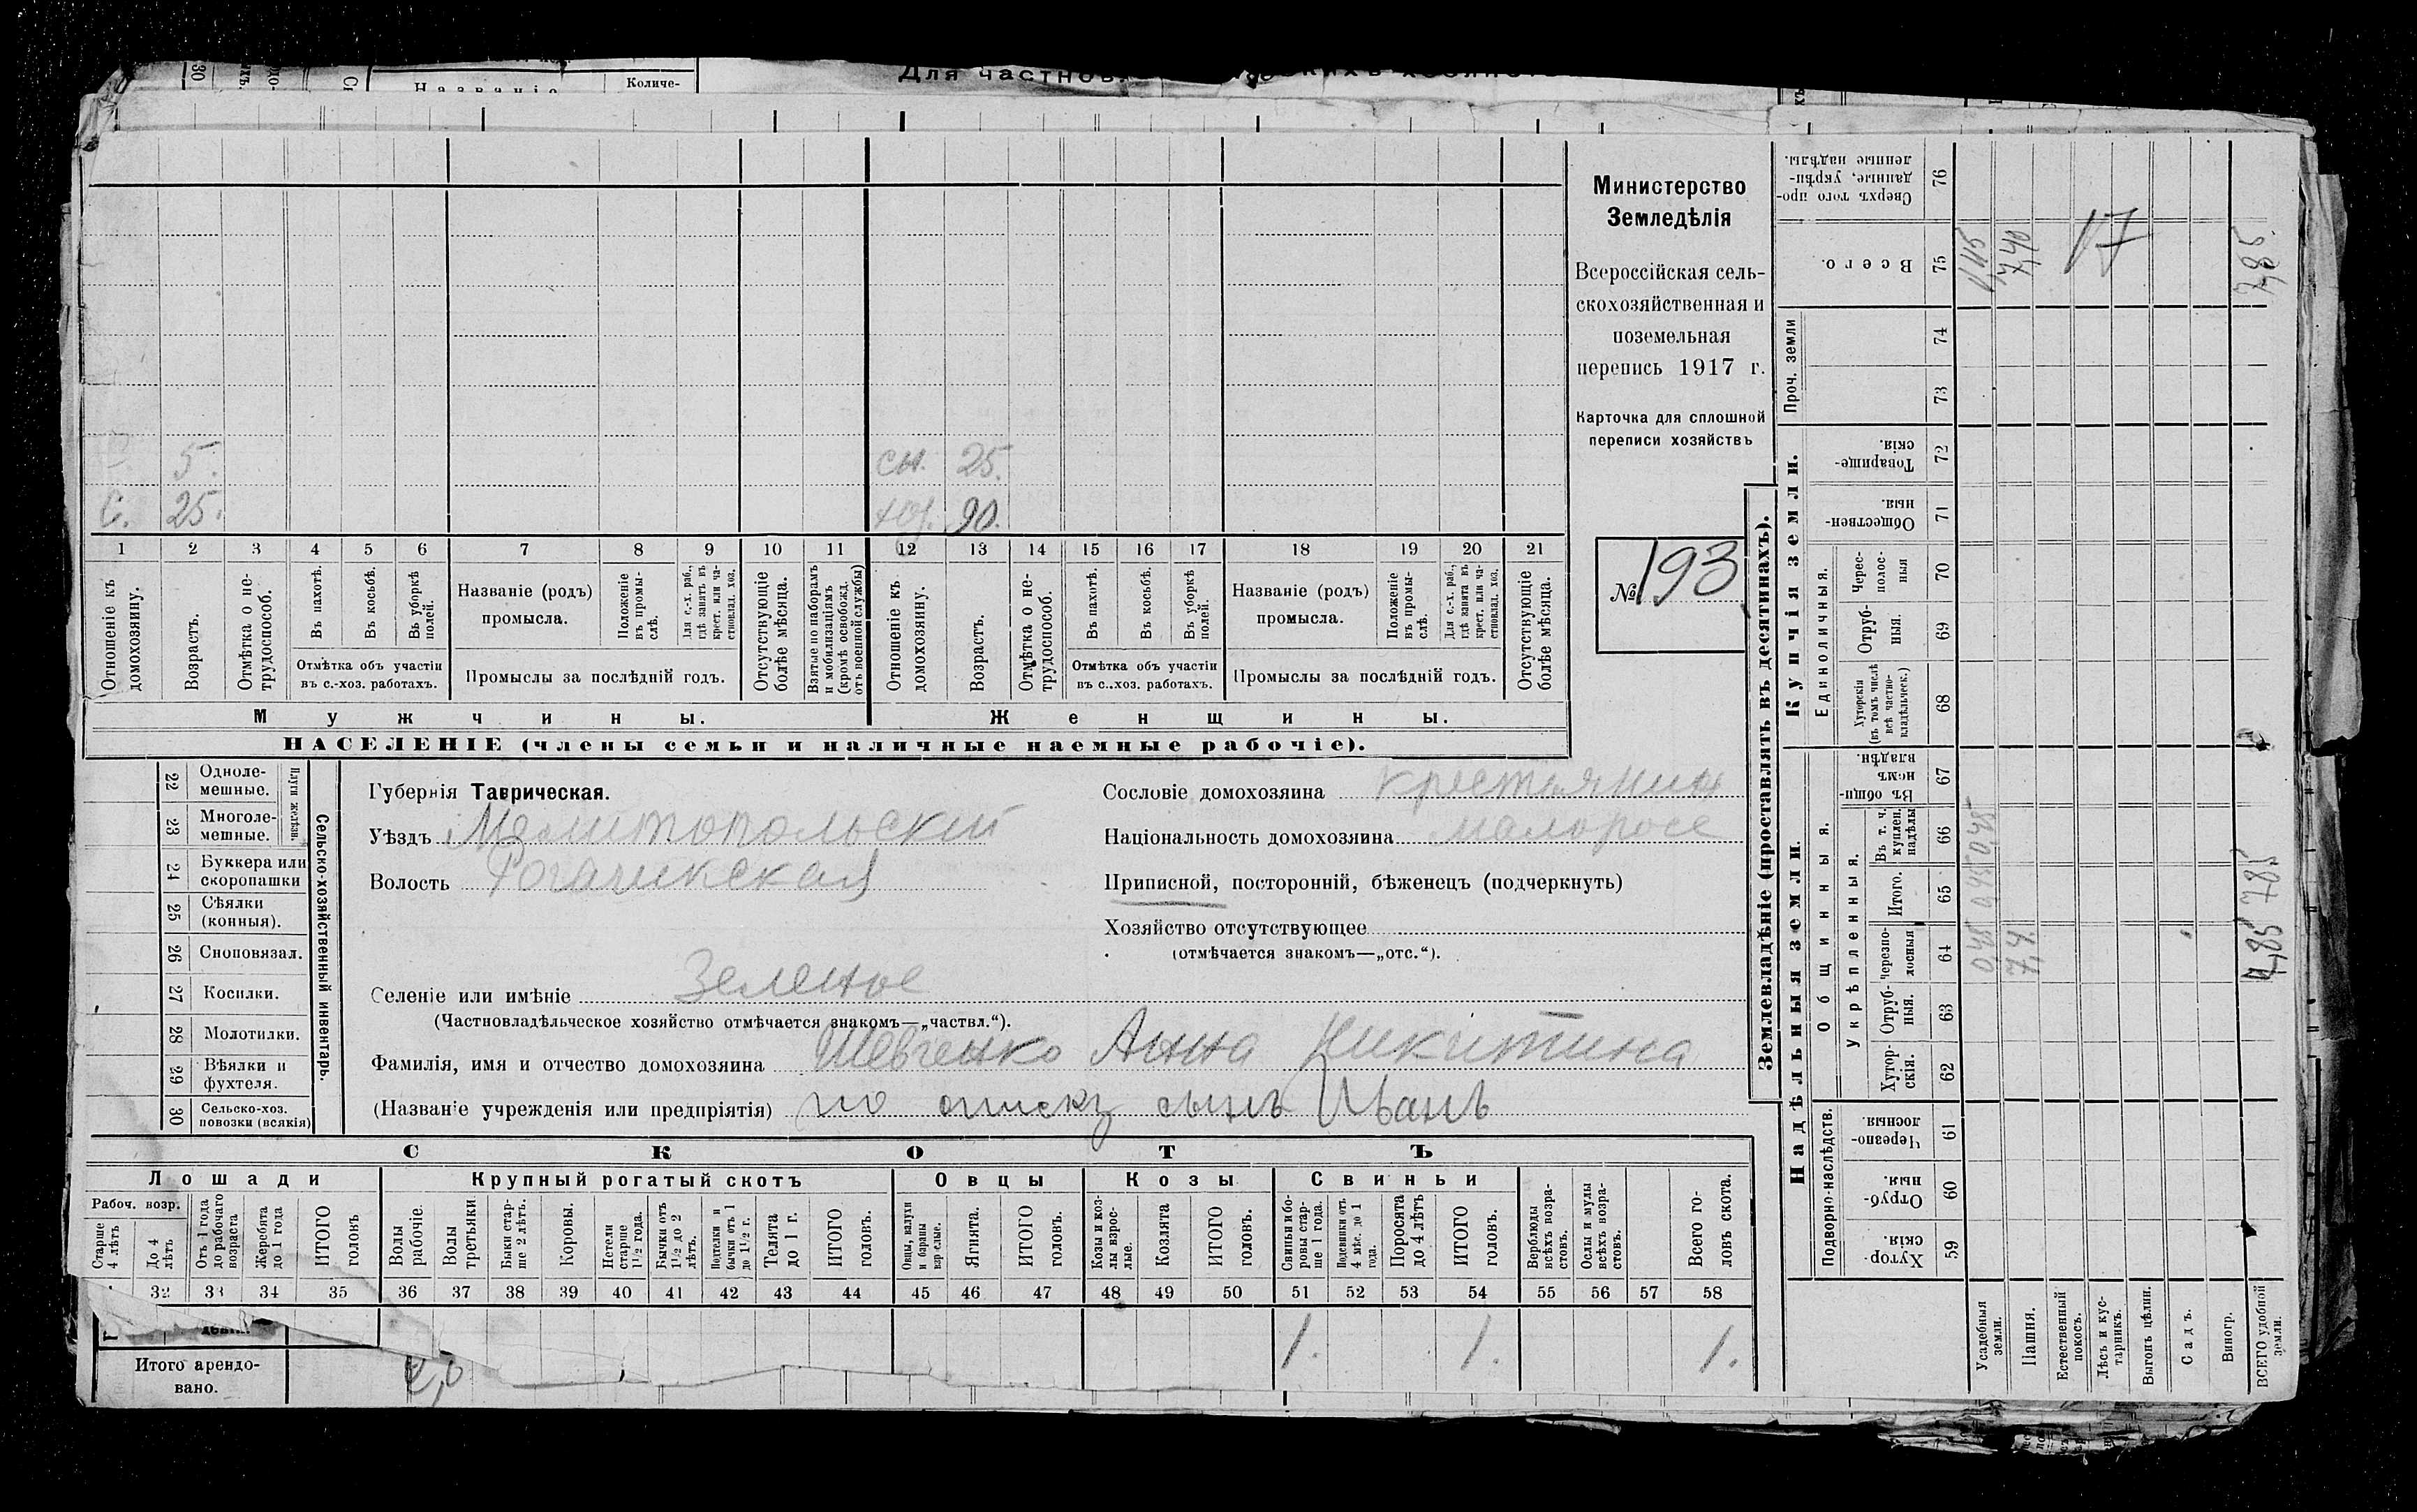 Для частнов
Названіе
Количе-
Министерство
Земледѣлія
Всероссійская сель-
скохозяйственная и
поземельная
перепись 1917 г.
Карточка для сплошной
переписи хозяйствъ
№ 193
5. сн. 25.
С. 25. 90.
1 2 3 4 5 6 7 8 9 10 11 12 13 14 15 16 17 18 19 20 21
Отношеніе къ домохозяину.
Возрастъ.
Отмѣтка о не-трудоспособ.
Въ пахотѣ.
Въ косьбѣ.
Въ уборкѣ полей.
Отмѣтка объ участіи
въ с.-хоз. работахъ.
Названіе (родъ)
промысла.
Положеніе въ промы-слѣ.
Для с.-х. раб., гдѣ занятъ въ крест. или ча-стновлад. хоз.
Промыслы за послѣдній годъ.
Отсутствующіе болѣе мѣсяца.
Взятые по наборамъ и мобилизаціямъ (кромѣ освобожд. отъ военной службы)
Отношеніе къ домохозяину.
Возрастъ.
Отмѣтка о не-трудоспособ.
Въ пахотѣ.
Въ косьбѣ.
Въ уборкѣ полей.
Отмѣтка объ участіи
въ с.-хоз. работахъ.
Названіе (родъ)
промысла.
Положеніе въ промы-слѣ.
Для с.-х. раб., гдѣ занята въ крест. или ча-стновлад. хоз.
Промыслы за послѣдній годъ.
Отсутствующіе болѣе мѣсяца.
Мужчины. Женщины.
НАСЕЛЕНІЕ (члены семьи и наличные наемные рабочіе).
Сельско-хозяйственный инвентарь.
Плуги желѣзн.
22 Одноле-мешные.
23 Многоле-мешные.
24 Буккера или скоропашки
25 Сѣялки (конныя).
26 Сноповязал.
27 Косилки.
28 Молотилки.
29 Вѣялки и фухтеля.
30 Сельско-хоз. повозки (всякія)
Губернія Таврическая.
Уѣздъ Мелитопольский
Волость Рогачикская
Селеніе или имѣніе Зеленое
(Частновладѣльческое хозяйство отмѣчается знакомъ—„частвл.“).
Фамилія, имя и отчество домохозяина Шевченко Анна Никитина
(Названіе учрежденія или предпріятія) по списку сынъ Иванъ
Сословіе домохозяина крестьянин
Національность домохозяина малоросс
Приписной, посторонній, бѣженецъ (подчеркнуть)
Хозяйство отсутствующее
(отмѣчается знакомъ—„отс.“).
СКОТЪ
Лошади Крупный рогатый скотъ Овцы Козы Свиньи
Рабоч. возр.
Старше 4 лѣтъ
До 4 лѣтъ
Отъ 1 года до рабочаго возраста
Жеребята до 1 года
ИТОГО головъ
Волы рабочіе.
Волы третьяки
Быки стар-ше 2 лѣтъ.
Коровы.
Нетели старше 1½ года.
Бычки отъ 1½ до 2 лѣтъ.
Подтелки и бычки отъ 1 до 1½ г.
Телята до 1 г.
ИТОГО головъ.
Овцы, валухи и бараны взрослые.
Ягнята.
ИТОГО головъ.
Козы и коз-лы взрос-лые.
Козлята
ИТОГО головъ.
Свиньи и бо-ровы стар-ше 1 года.
Подсвинки отъ 4 мѣс. до 1 года.
Поросята до 4 лѣтъ
ИТОГО головъ.
Верблюды всѣхъ возра-стовъ.
Ослы и мулы всѣхъ возра-стовъ.
Всего го-ловъ скота.
32 33 34 35 36 37 38 39 40 41 42 43 44 45 46 47 48 49 50 51 52 53 54 55 56 57 58
1. 1. 1.
Итого арендо-
вано.
2,0
Землевладѣніе (проставлять въ десятинахъ).
Надѣльныя земли.
Купчія земли.
Проч. земли
Подворно-наслѣдств.
Общинныя.
Укрѣпленныя.
Единоличныя.
Хутор-скія. 59
Отруб-ныя. 60
Черезпо-лосныя 61
Хутор-скія. 62
Отруб-ныя. 63
Черезпо-лосныя 64
Итого. 65
Въ т. ч. куплен. надѣлы 66
Въ общи-номъ владѣн. 67
Хуторскія (въ томъ числѣ всѣ частно-владѣльческ.) 68
Отруб-ныя. 69
Черес-полос-ныя 70
Обществен-ныя. 71
Товарище-скія. 72
73
74
Всего. 75
Сверхъ того про-данные, укрѣп-ленные надѣлы. 76
Усадебныя земли. 0,45 0,45 0,45
Пашня. 7,4 7,40
Естественный покосъ.
Лѣсъ и кус-тарникъ.
Выгонъ цѣлин.
Садъ.
Виногр.
ВСЕГО удобной земли. 7,85 7,85 7,85.
17